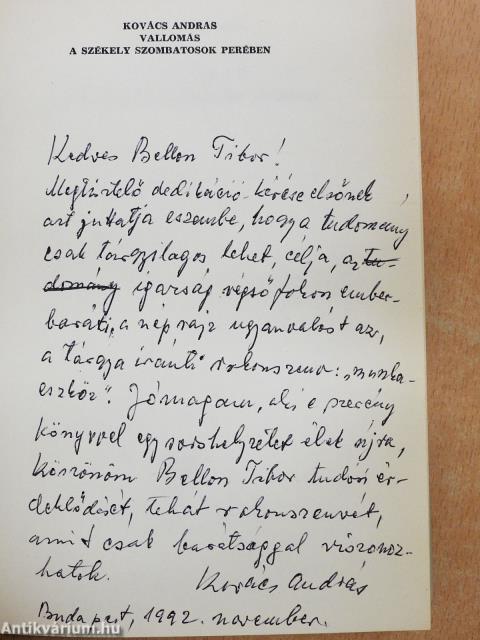 KOVÁCS ANDRAS
VALLOMÁS
A SZÉKELY SZOMBATOSOK PERÉBEN
Kedves Bellon Tibor!
Megtisztelő dedikáció-kérése elsőnek
azt juttatja eszembe, hogy a tudomány
csak tárgyilagos lehet, célja, az tu-
domány igazság végső fokon ember-
baráti, a néprajz ugyanvalóst az,
a tárgya iránti rokonszenv: „munka-
eszköz". Jómagam, aki e szerény
könyvvel egy sorshelyzetet élek újra,
köszönöm Bellon Tibor tudós ér-
deklődését, tehát rokonszenvét,
amit csak barátsággal viszonoz-
hatok.
Kovács András
Budapest, 1992. november.
Antikvarium.hu